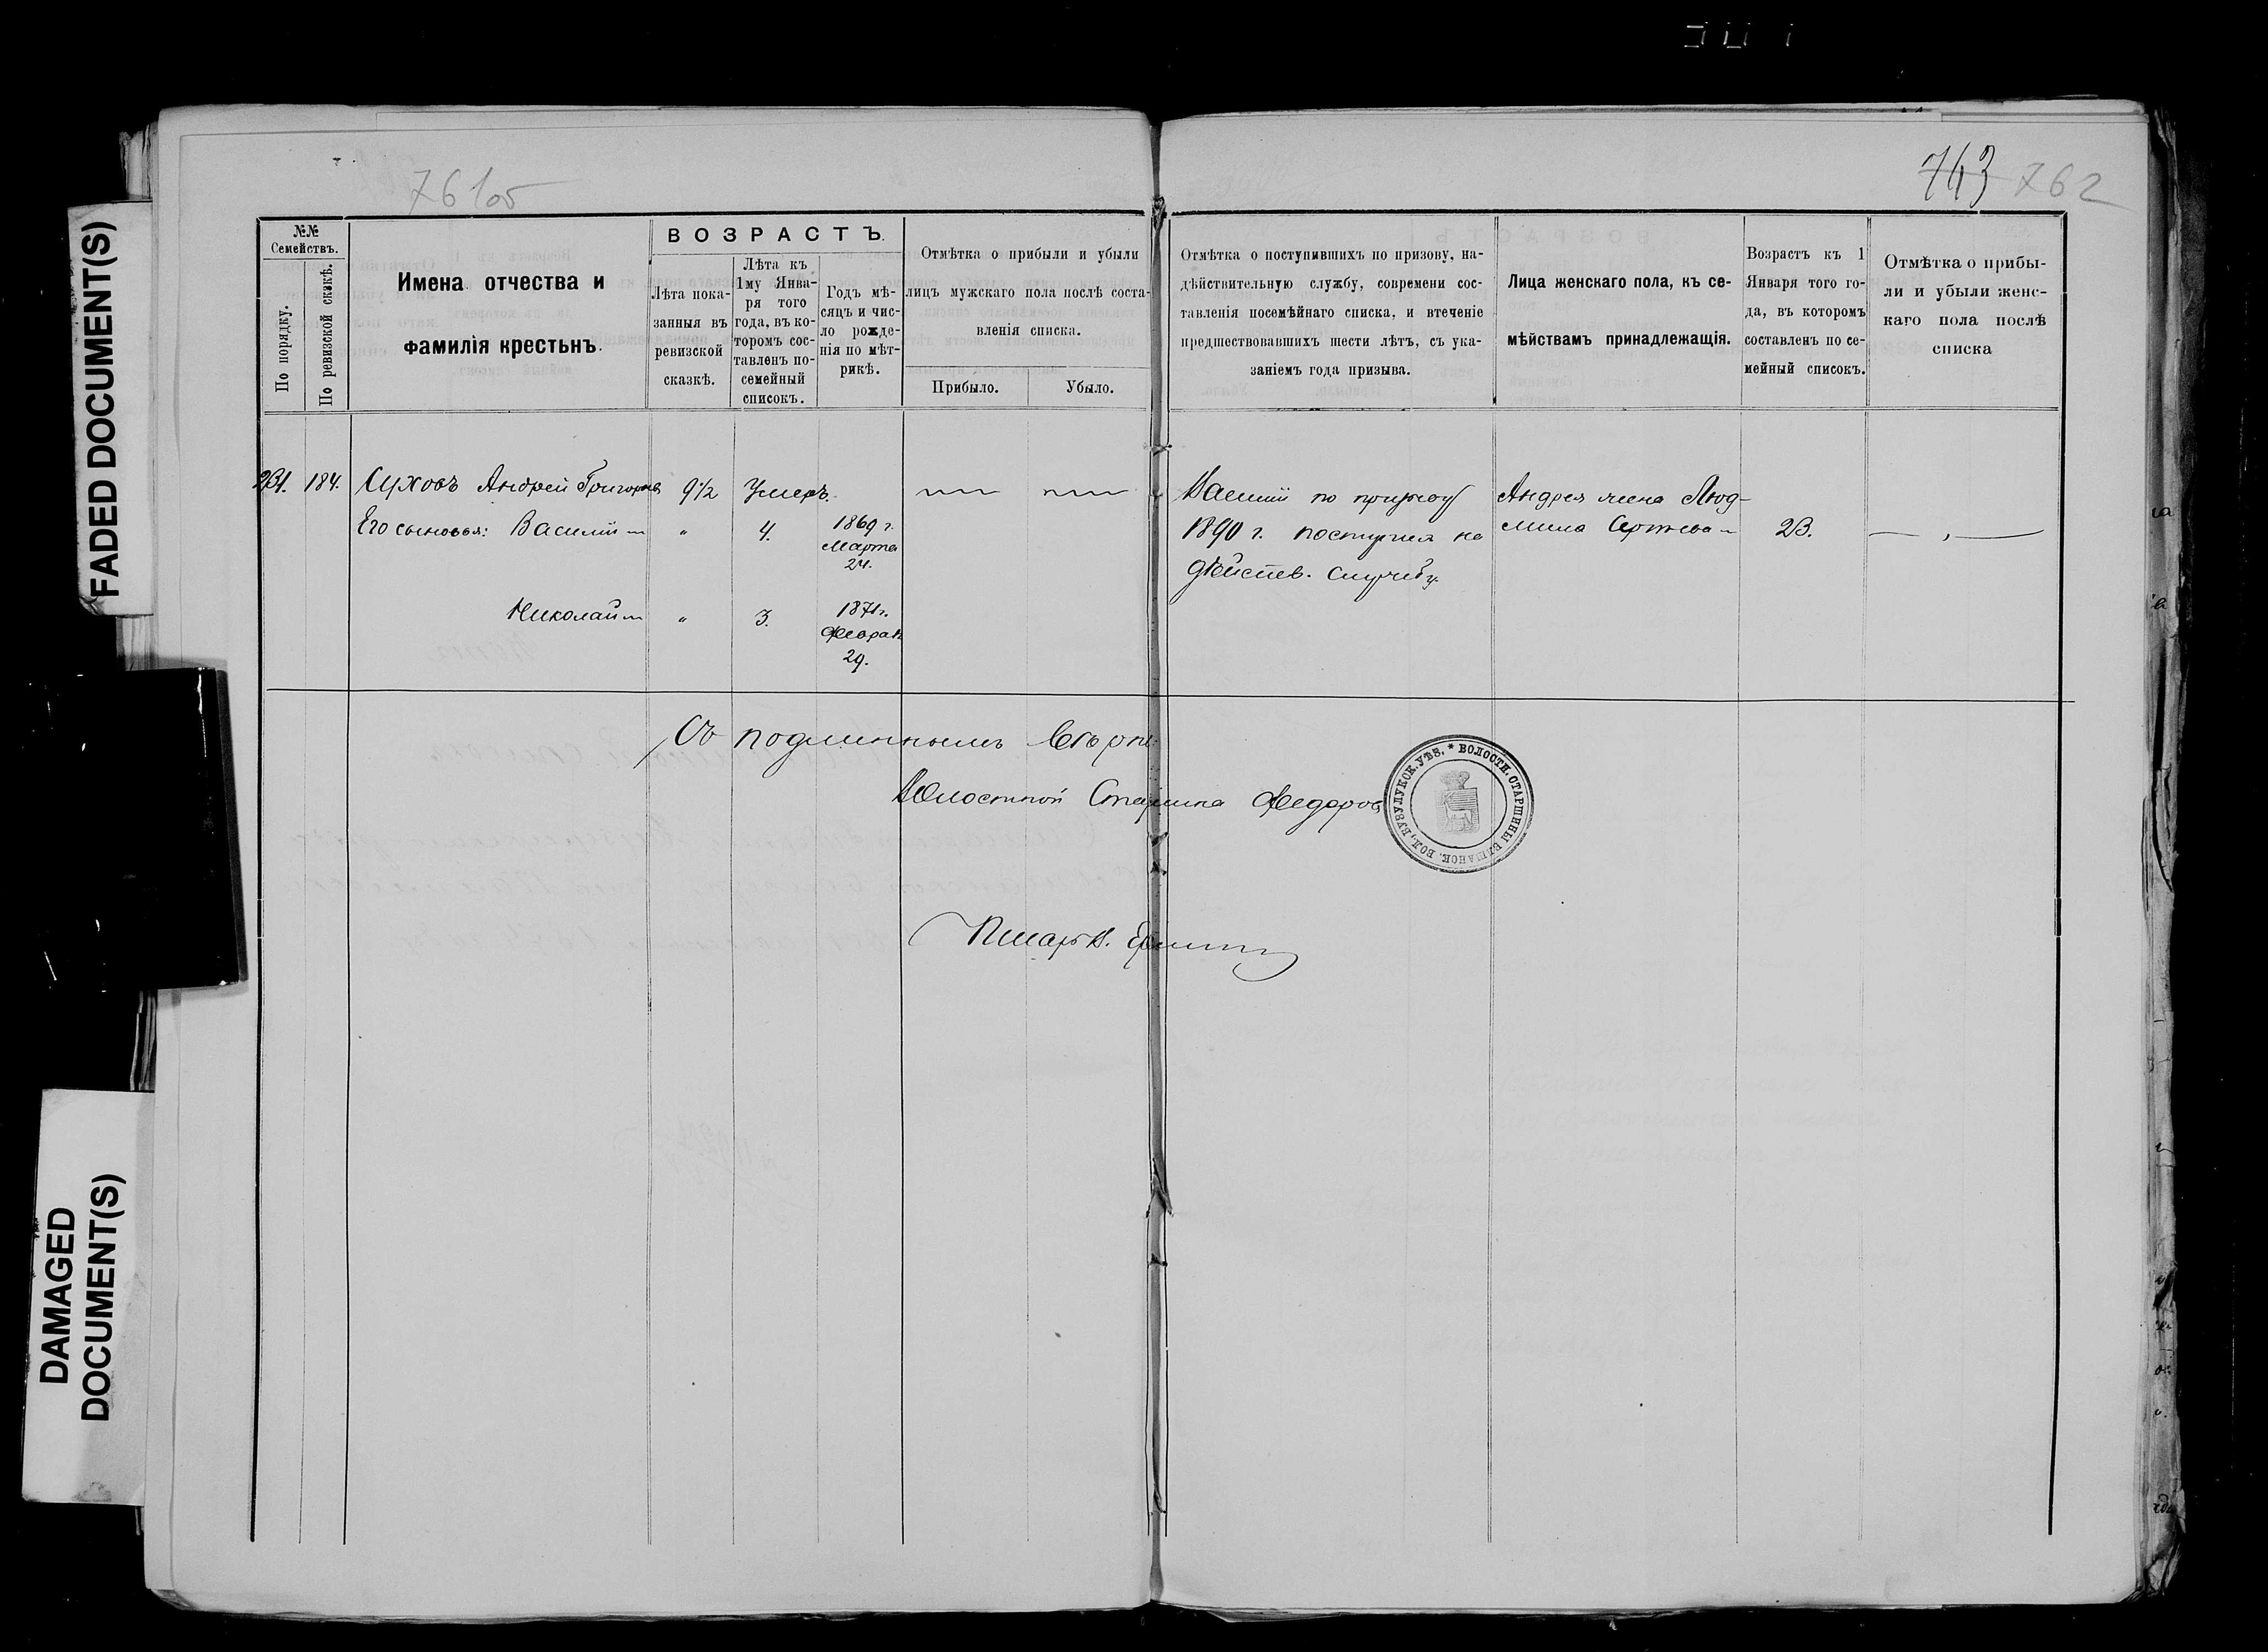 FADED DOCUMENT(S)
DAMAGED
DOCUMENT(S)
761об
743 762
№№
Семействъ.
По порядку.
По ревизской скжѣ.
Имена отчества и
фамилія крестьнъ.
ВОЗРАСТЪ.
Лѣта пока-
занныя въ
ревизской
сказкѣ.
Лѣта къ
1му Янва-
ря того
года, въ ко-
торомъ сос-
тавленъ по-
семейный
списокъ.
Годъ мѣ-
сяцъ и чис-
ло рожде-
нія по мѣт-
рикѣ.
Отмѣтка о прибыли и убыли
лицъ мужскаго пола послѣ соста-
вленія списка.
Прибыло.
Убыло.
Отмѣтка о поступившихъ по призову, на-
дѣйствительную службу, современи сос-
тавленія посемѣйнаго списка, и втеченіе
предшествовавшихъ шести лѣтъ, съ ука-
заніемъ года призыва.
Лица женскаго пола, къ се-
мѣйствамъ принадлежащія.
Возрастъ къ 1
Января того го-
да, въ которомъ
составленъ по се-
мейный списокъ.
Отмѣтка о прибы-
ли и убыли женс-
каго пола послѣ
списка
231. 184. Суховъ Андрей Григорьевъ 9½ Умеръ.
Его сыновья: Василій " 4. 1869 г.
Марта
24.
Николай " 3. 1871г.
Феврал.
29.
Василій по призыву
1890 г. поступил на
дѣйств. службу.
Андрея жена Люд-
мила Сергѣева 23.
Съ подлиннымъ вѣрно:
Волостной Старшина Федоровъ
* ВОЛОСТН. СТАРШИНЫ ЕЛШАНСК. ВОЛ., БУЗУЛУКСК. УѢЗ.
Писарь